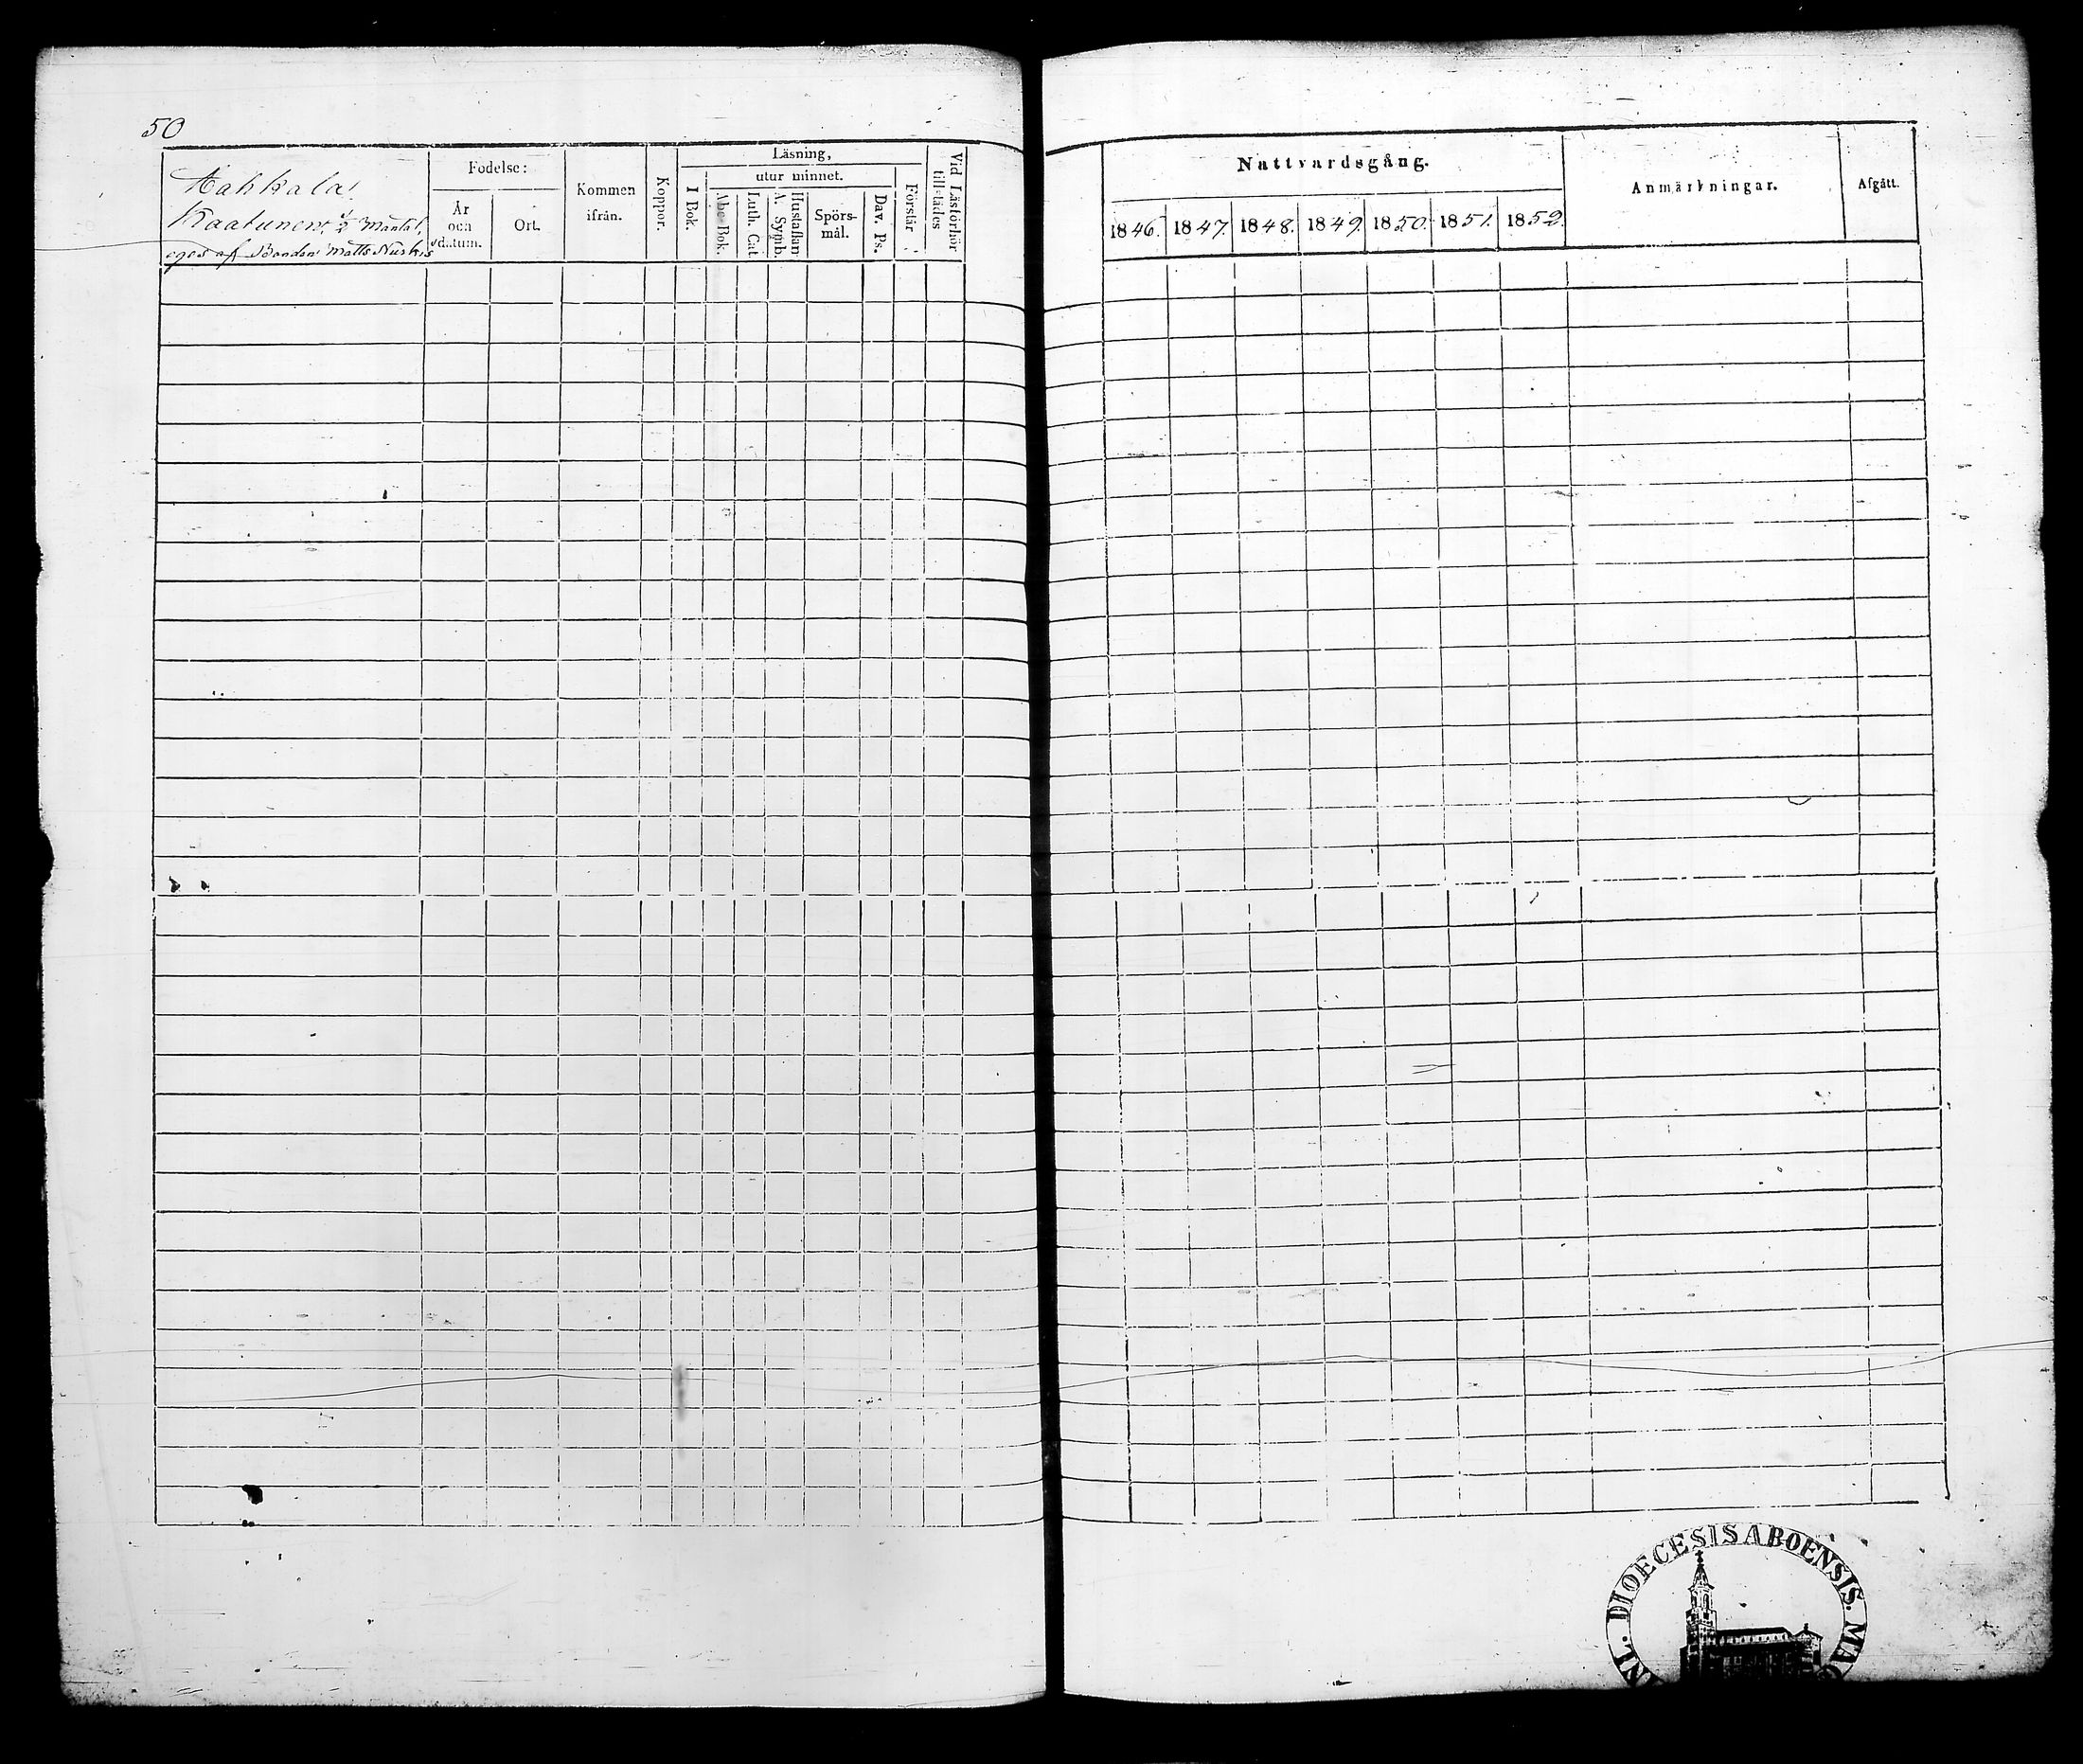 50
Hahkala,
Kaatunen, 1/2 Mantal,
eges af Bonden Matts Nuskis
Födelse:
År och datum.
Ort.
Kommen ifrån.
Koppor.
Läsning,
I Bok.
utur minnet.
Abc-Bok.
Luth. Cat.
Hustaflan A. Symb.
Spörs-mål.
Dav. Ps.
Förstår
Vid Läsförhör tillstädes
Nattvardsgång.
1846. 1847. 1848. 1849. 1850. 1851. 1852.
Anmärkningar.
Afgått.
DIOECESIS ABOENSIS. MA